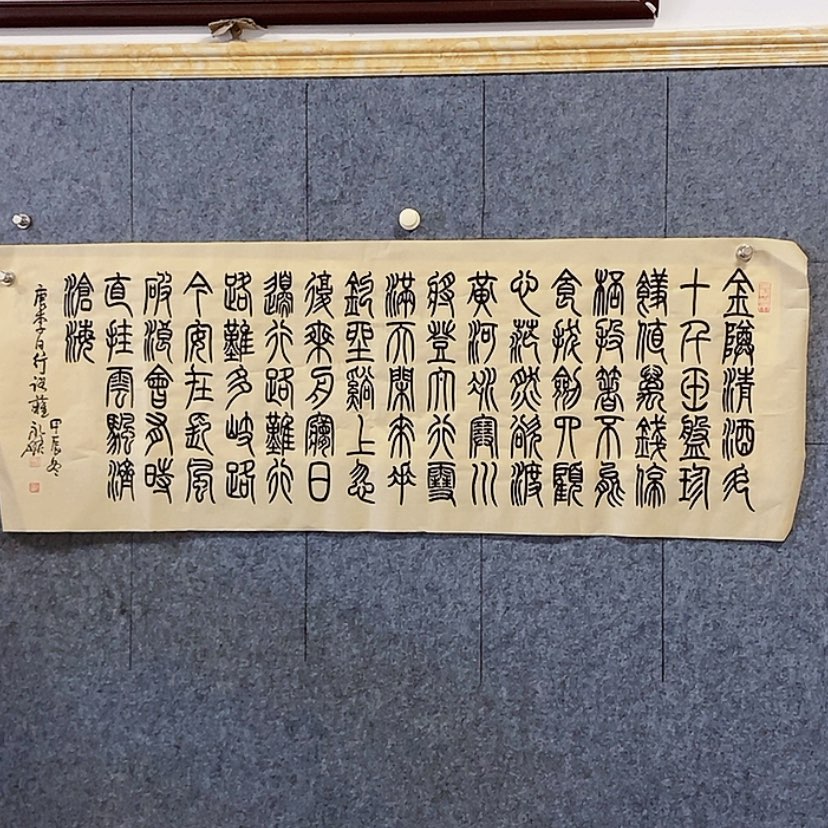 金罇清酒斗
十千玉盤珍
饈值萬錢停
桮投箸不能
食拔劍四顧
心茫然欲渡
黃河冰塞川
將登太行雪
滿天閑來垂
釣坐谿上忽
復乘舟夢日
邊行路難行
路難多岐路
今安在長風
破浪會有時
直挂雲帆濟
滄海
唐李白行路難
甲辰冬